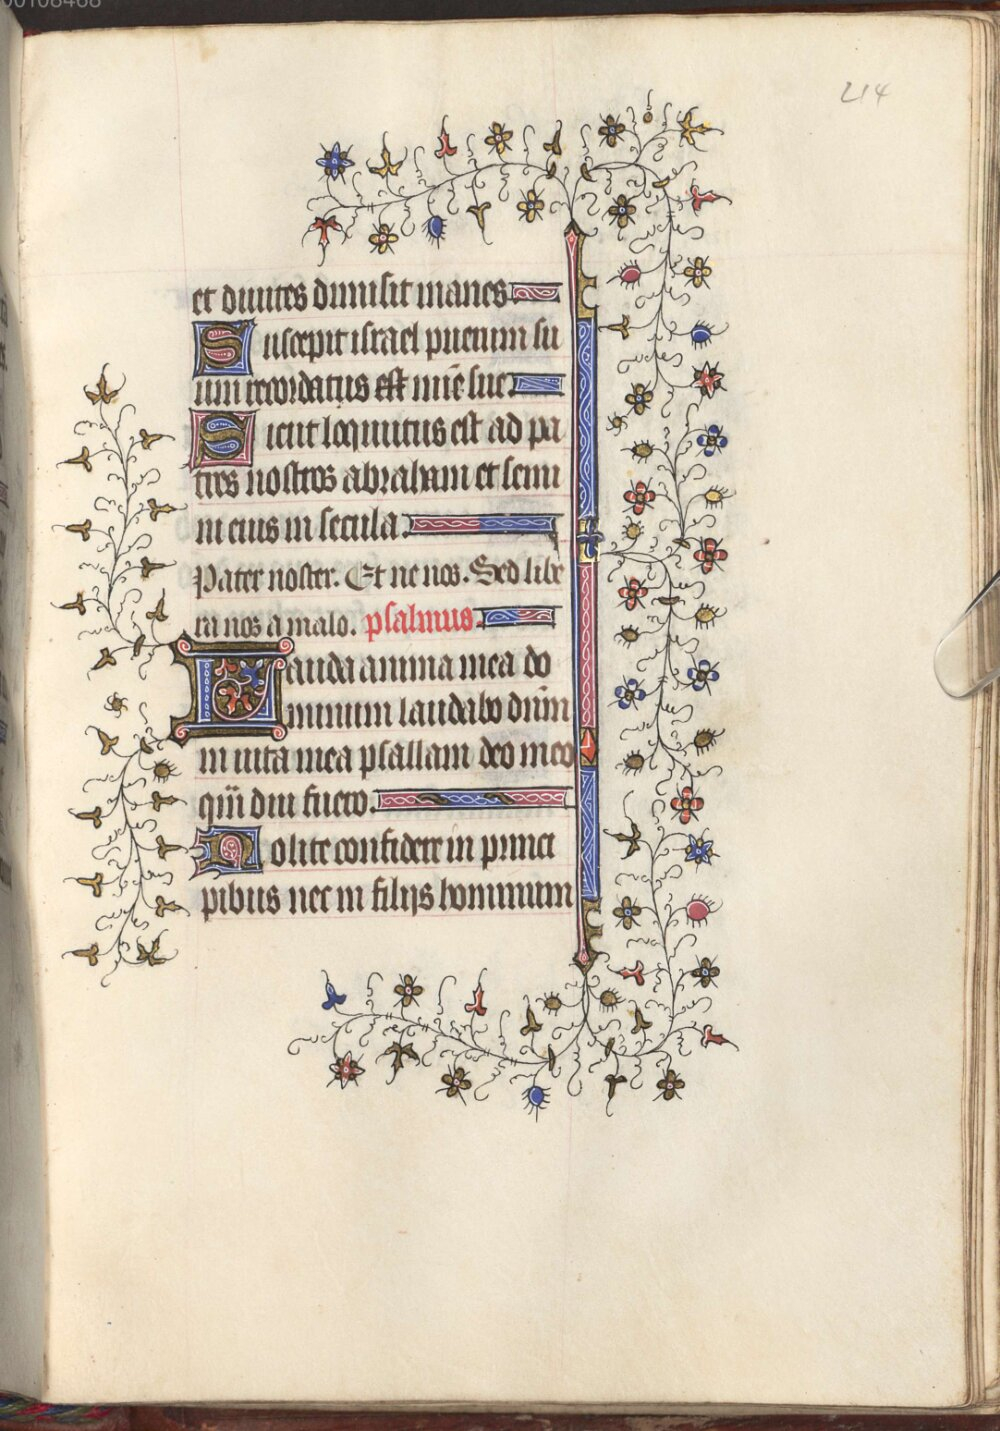 00108468
214
et diuites dimisit inanes
Suscepit israel puerum su
um recordatus est mīe sue
Sicut locutus est ad pa
tres nostros abraham et semi
ni eius in secula
Pater noster. Et ne nos. Sed libe
ra nos a malo. psalmus
Lauda anima mea do
minum laudabo dūm
in uita mea psallam deo meo
qm̄ diu fuero.
Nolite confidere in princi
pibus nec in filijs hominum